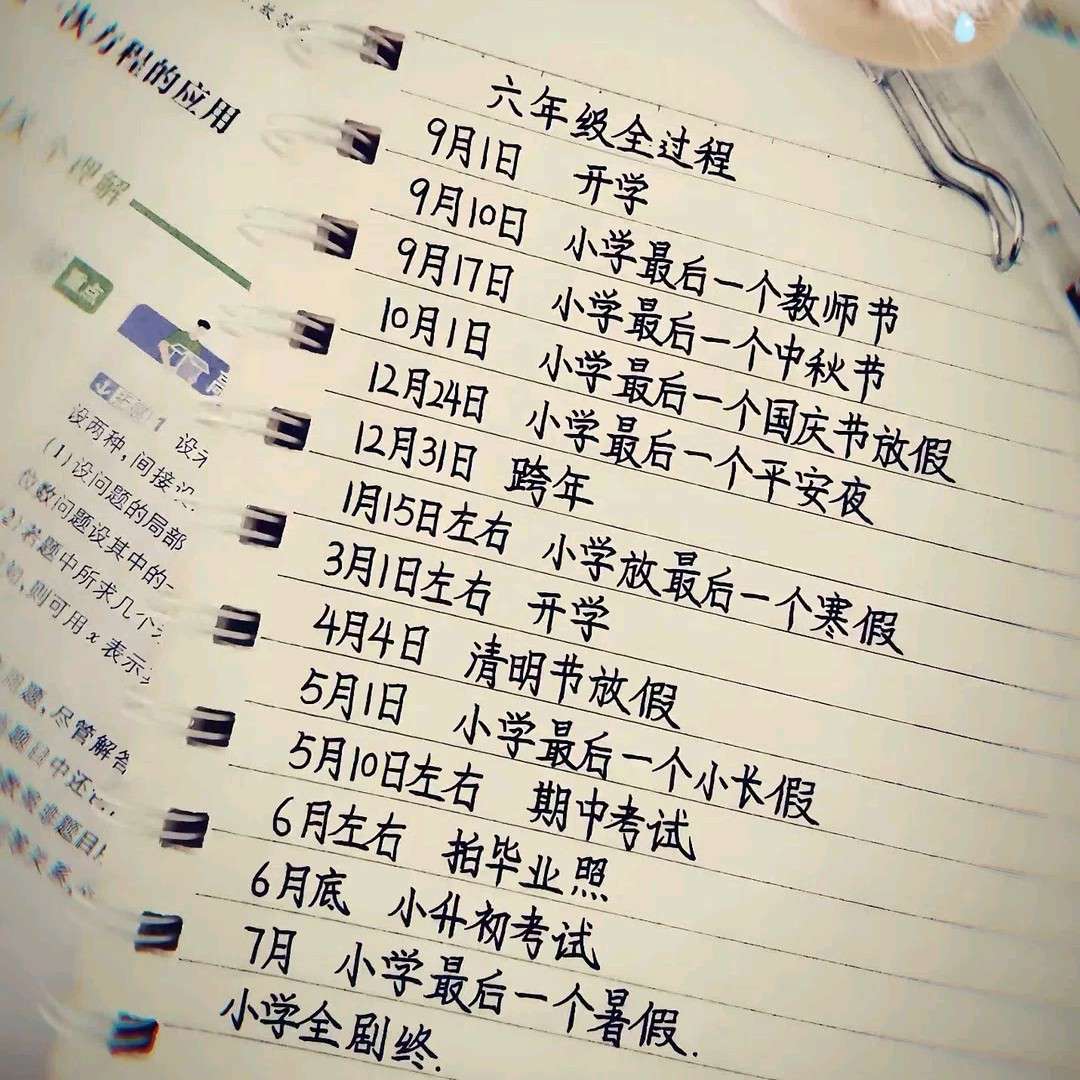 次方程的应用
理解
设两种,间接设
(1)设问题的局部
位数问题设其中的一
(2)若题中所求几个
则可用x表示
尽管解答
题目中还
六年级全过程
9月1日 开学
9月10日 小学最后一个教师节
9月17日 小学最后一个中秋节
10月1日 小学最后一个国庆节放假
12月24日 小学最后一个平安夜
12月31日 跨年
1月15日左右 小学放最后一个寒假
3月1日左右 开学
4月4日 清明节放假
5月1日 小学最后一个小长假
5月10日左右 期中考试
6月左右 拍毕业照
6月底 小升初考试
7月 小学最后一个暑假.
小学全剧终.